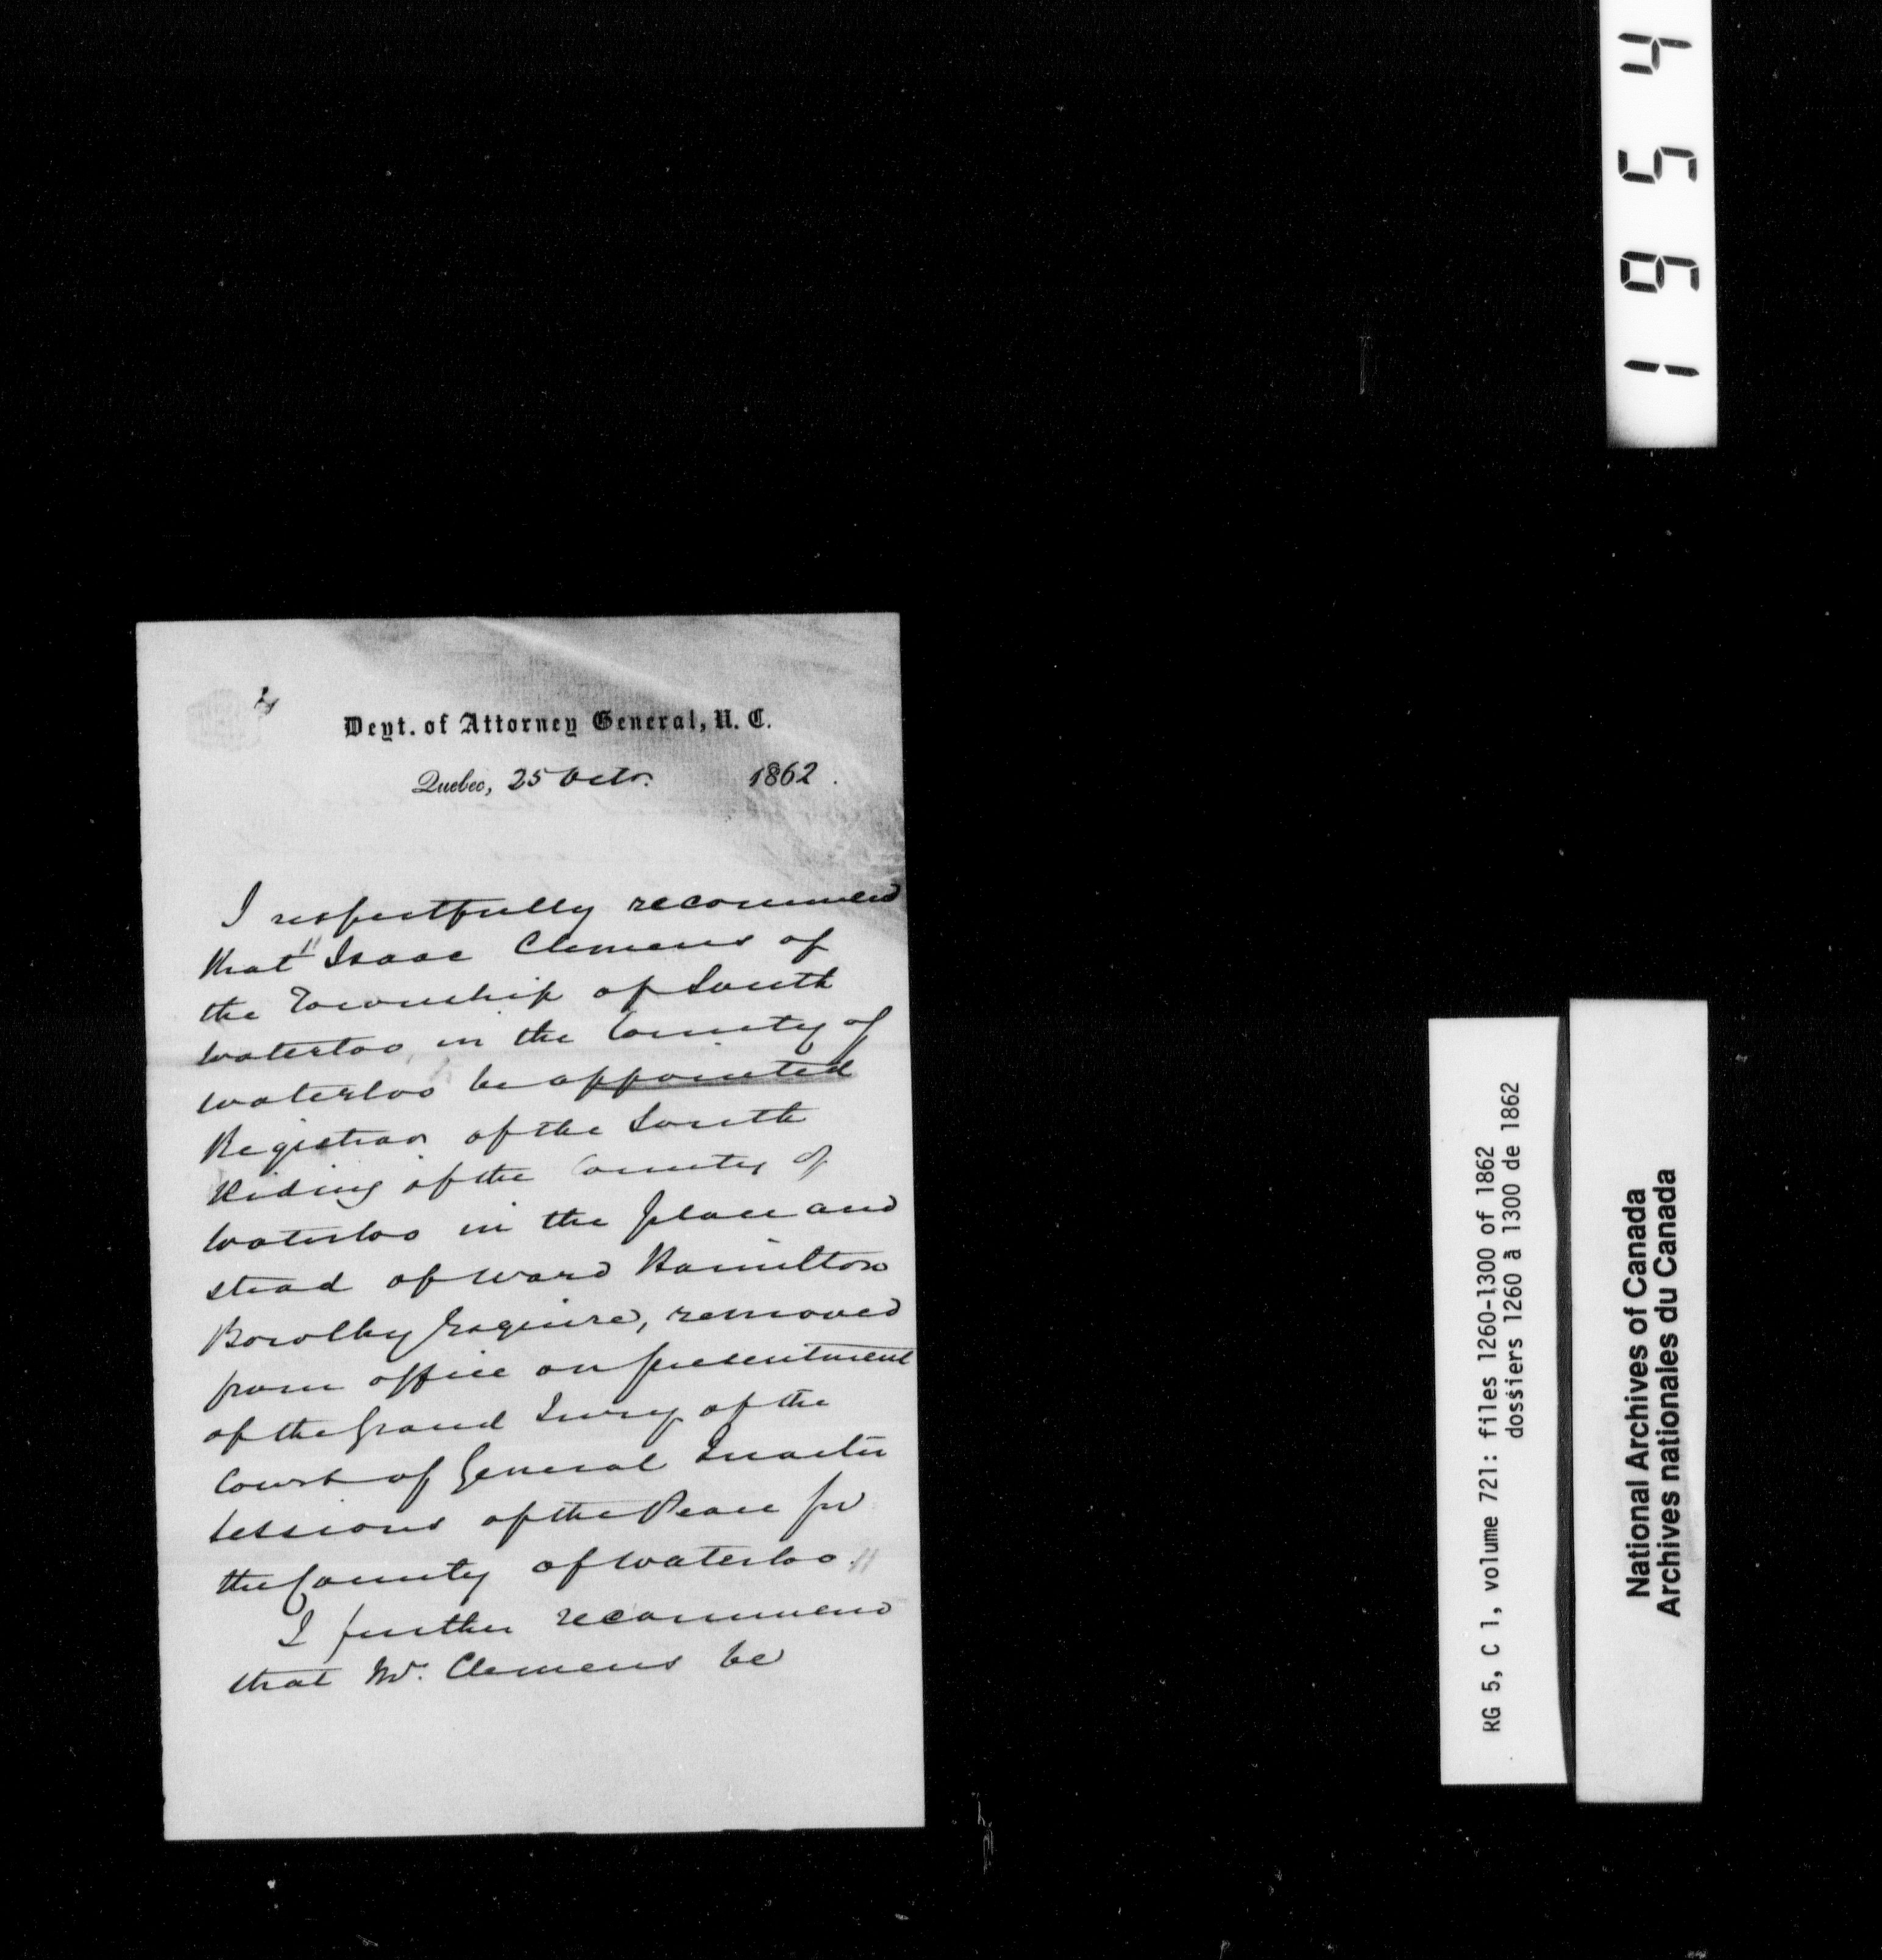 Dept. of Attorney General, U. C.
Quebec, 25 Octr. 1862.
I respectfully recommend
that "Isaac Clemens of
the Township of South
Waterloo in the County of
Waterloo be appointed
Registrar of the South
Riding of the County of
Waterloo in the place and
stead of Ward Hamilton
Bowlby Esquire, removed
from office on presentment
of the Grand Jury of the
Court of General Quarter
Sessions of the Peace for
the County of Waterloo."
I further recommend
that Mr. Clemens be
1954
RG 5, C 1, volume 721: files 1260-1300 of 1862
dossiers 1260 à 1300 de 1862
National Archives of Canada
Archives nationales du Canada